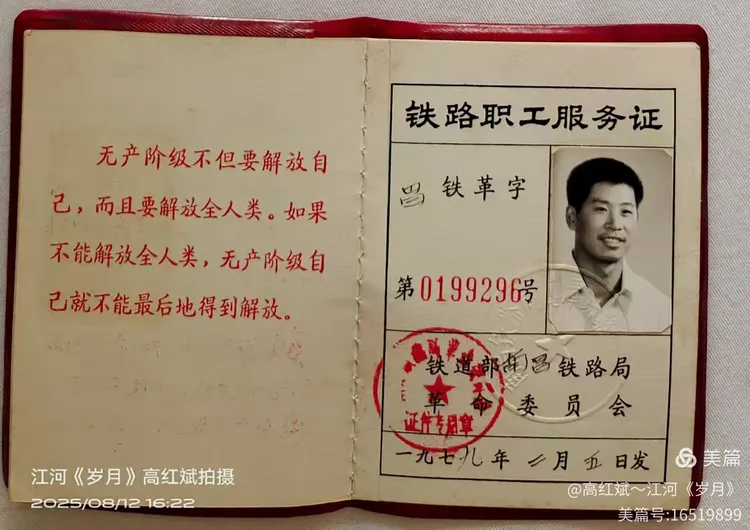 无产阶级不但要解放自
己，而且要解放全人类。如果
不能解放全人类，无产阶级自
己就不能最后地得到解放。
铁路职工服务证
昌 铁革字
第0199296号
铁道部南昌铁路局
革命委员会
证件专用章
一九七九年二月五日发
江河《岁月》高红斌拍摄
2025/08/12 16:22
美篇
@高红斌～江河《岁月》
美篇号:16519899